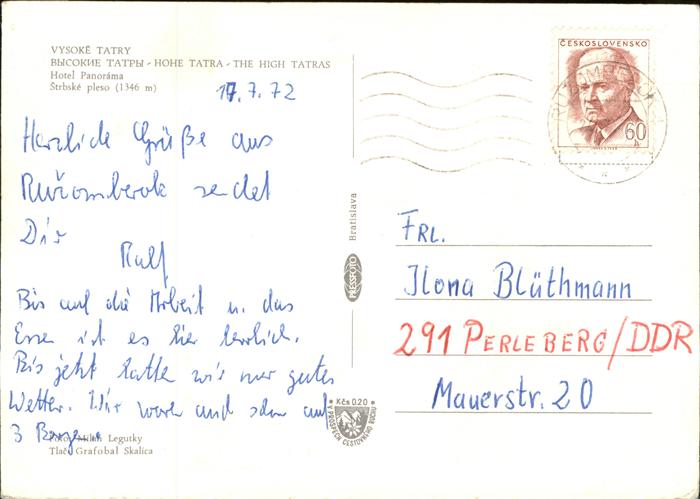 VYSOKÉ TATRY
ВЫСОКИЕ ТАТРЫ - HOHE TATRA - THE HIGH TATRAS
Hotel Panoráma
Štrbské pleso (1346 m)
17.7.72
Herzliche Grüße aus
Ružomberok sendet
Dir
Ralf
Bis auf die Arbeit u. das
Essen ist es hier herrlich.
Bis jetzt hatten wir nur gutes
Wetter. Wir waren auch schon auf
3 Bergen.
Foto: Milan Legutky
Tlač Grafobal Skalica
Bratislava
PRESSFOTO
Kčs 0.20
V PROSPECH CESTOVNÉHO RUCHU
ČESKOSLOVENSKO
60
RUŽOMBEROK
FRL.
Ilona Blüthmann
291 PERLEBERG/DDR
Mauerstr. 20